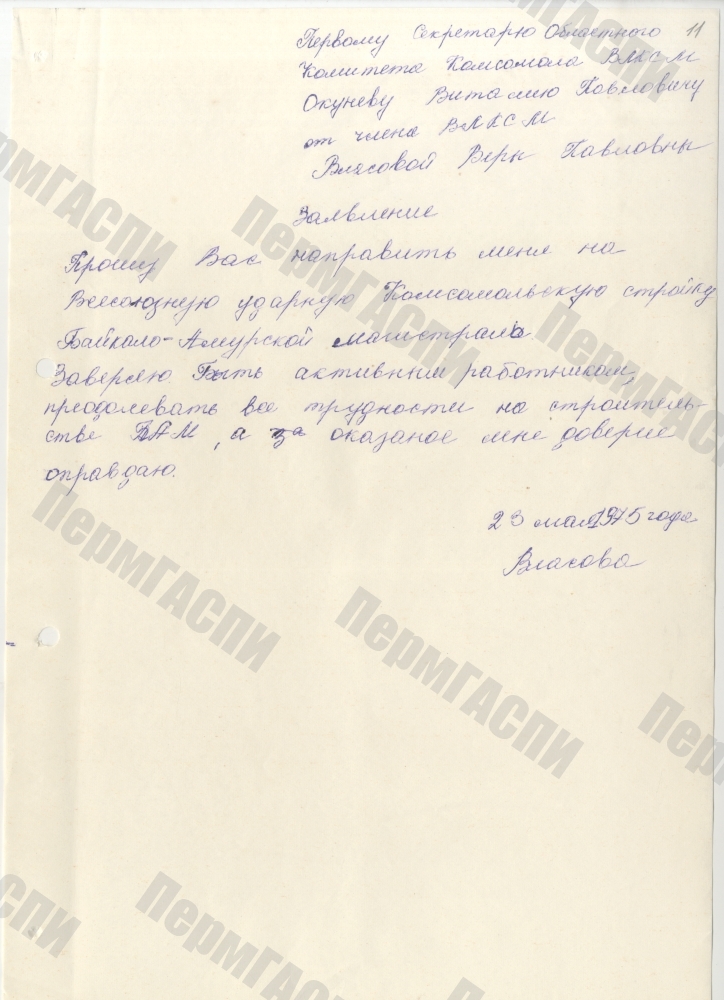 11
Первому Секретарю Областного
Комитета Комсомола ВЛКСМ
Окуневу Виталию Павловичу
от члена ВЛКСМ
Власовой Веры Павловны
Заявление
Прошу Вас направить меня на
Всесоюзную ударную Комсомольскую стройку
Байкало-Амурской магистрали
Заверяю Быть активным работником,
преодолевать все трудности на строитель-
стве БАМ, а за оказаное мне доверие
оправдаю.
23 мая 1975 года
Власова
ПермГАСПИ
ПермГАСПИ
ПермГАСПИ
ПермГАСПИ
ПермГАСПИ
ПермГАСПИ
ПермГАСПИ